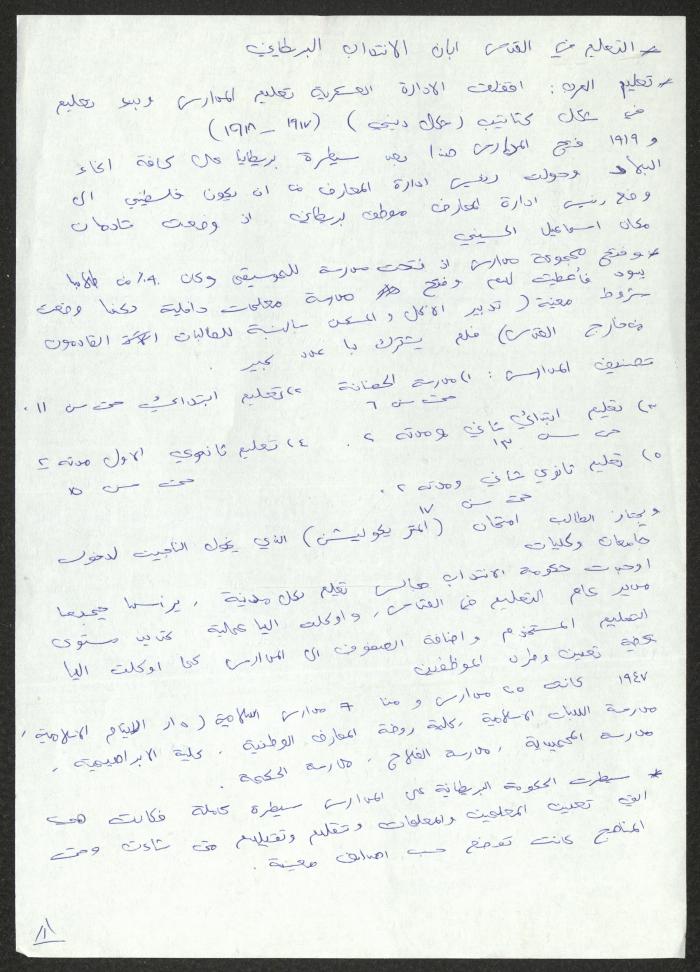 * التعليم في القدس ابان الانتداب البريطاني
* تعليم العرب : اقفلت الادارة العسكرية تعليم المدارس وبدء تعليم
في شكل كتاتيب (شكل ديني) (١٩١٧ – ١٩١٨)
و ١٩١٩ فتح المدارس هذا بعد سيطرة بريطانيا على كافة انحاء
البلاد وحولت رئيس ادارة المعارف من ان يكون فلسطيني الى
وضع رئيس ادارة المعارف موظف بريطاني اذ وضعت
مكان اسماعيل الحسيني
* وفتح مجموعة مدارس اذ فتحت مدرسة للموسيقى وكان ٩٠٪ من طلابها
يهود فأعطيت لهم وفتح مدرسة معلمات داخلية ولكنها وضعت
شروط معينة (تدبير الاكل والمسكن بالنسبة للطالبات القادمون
من خارج القدس) فلم يشترك بها عدد كبير .
تصنيف المدارس : ١) مدرسة الحضانة ٢) تعليم ابتدائي حتى سن ١١ .
حتى سن ٦
٣) تعليم ابتدائي ثاني ومدته ٢ . ٤) تعليم ثانوي الاول مدته ٢
حتى سن ١٣
حتى سن ١٥
٥) تعليم ثانوي ثاني ومدته ٢ .
حتى سن ١٧
ويجتاز الطالب امتحان (المتريكوليشن) الذي يخول الناجحين لدخول
جامعات وكليات
اوجدت حكومة الانتداب مجالس تعليم لكل مدينة ,
مدير عام التعليم في القدس , واوكلت اليها عملية مستوى
التعليم المستخدم واضافة الصفوف الى المدارس كما اوكلت اليها
تعيين وطرد الموظفين
١٩٤٧ كانت ٢٥ مدارس ومنها ٧ مدارس اسلامية (دار الايتام الاسلامية ,
مدرسة البنات الاسلامية , كلية روضة المعارف الوطنية , كلية الابراهيمية ,
مدرسة المحمدية , مدرسة الفلاح , مدرسة الحكمة .
* سيطرت الحكومة البريطانية على المدارس سيطرة كاملة فكانت هي
التي تعين المعلمين والمعلمات متى شاءت وحتى
المناهج كانت توضع حسب معينة .
١/